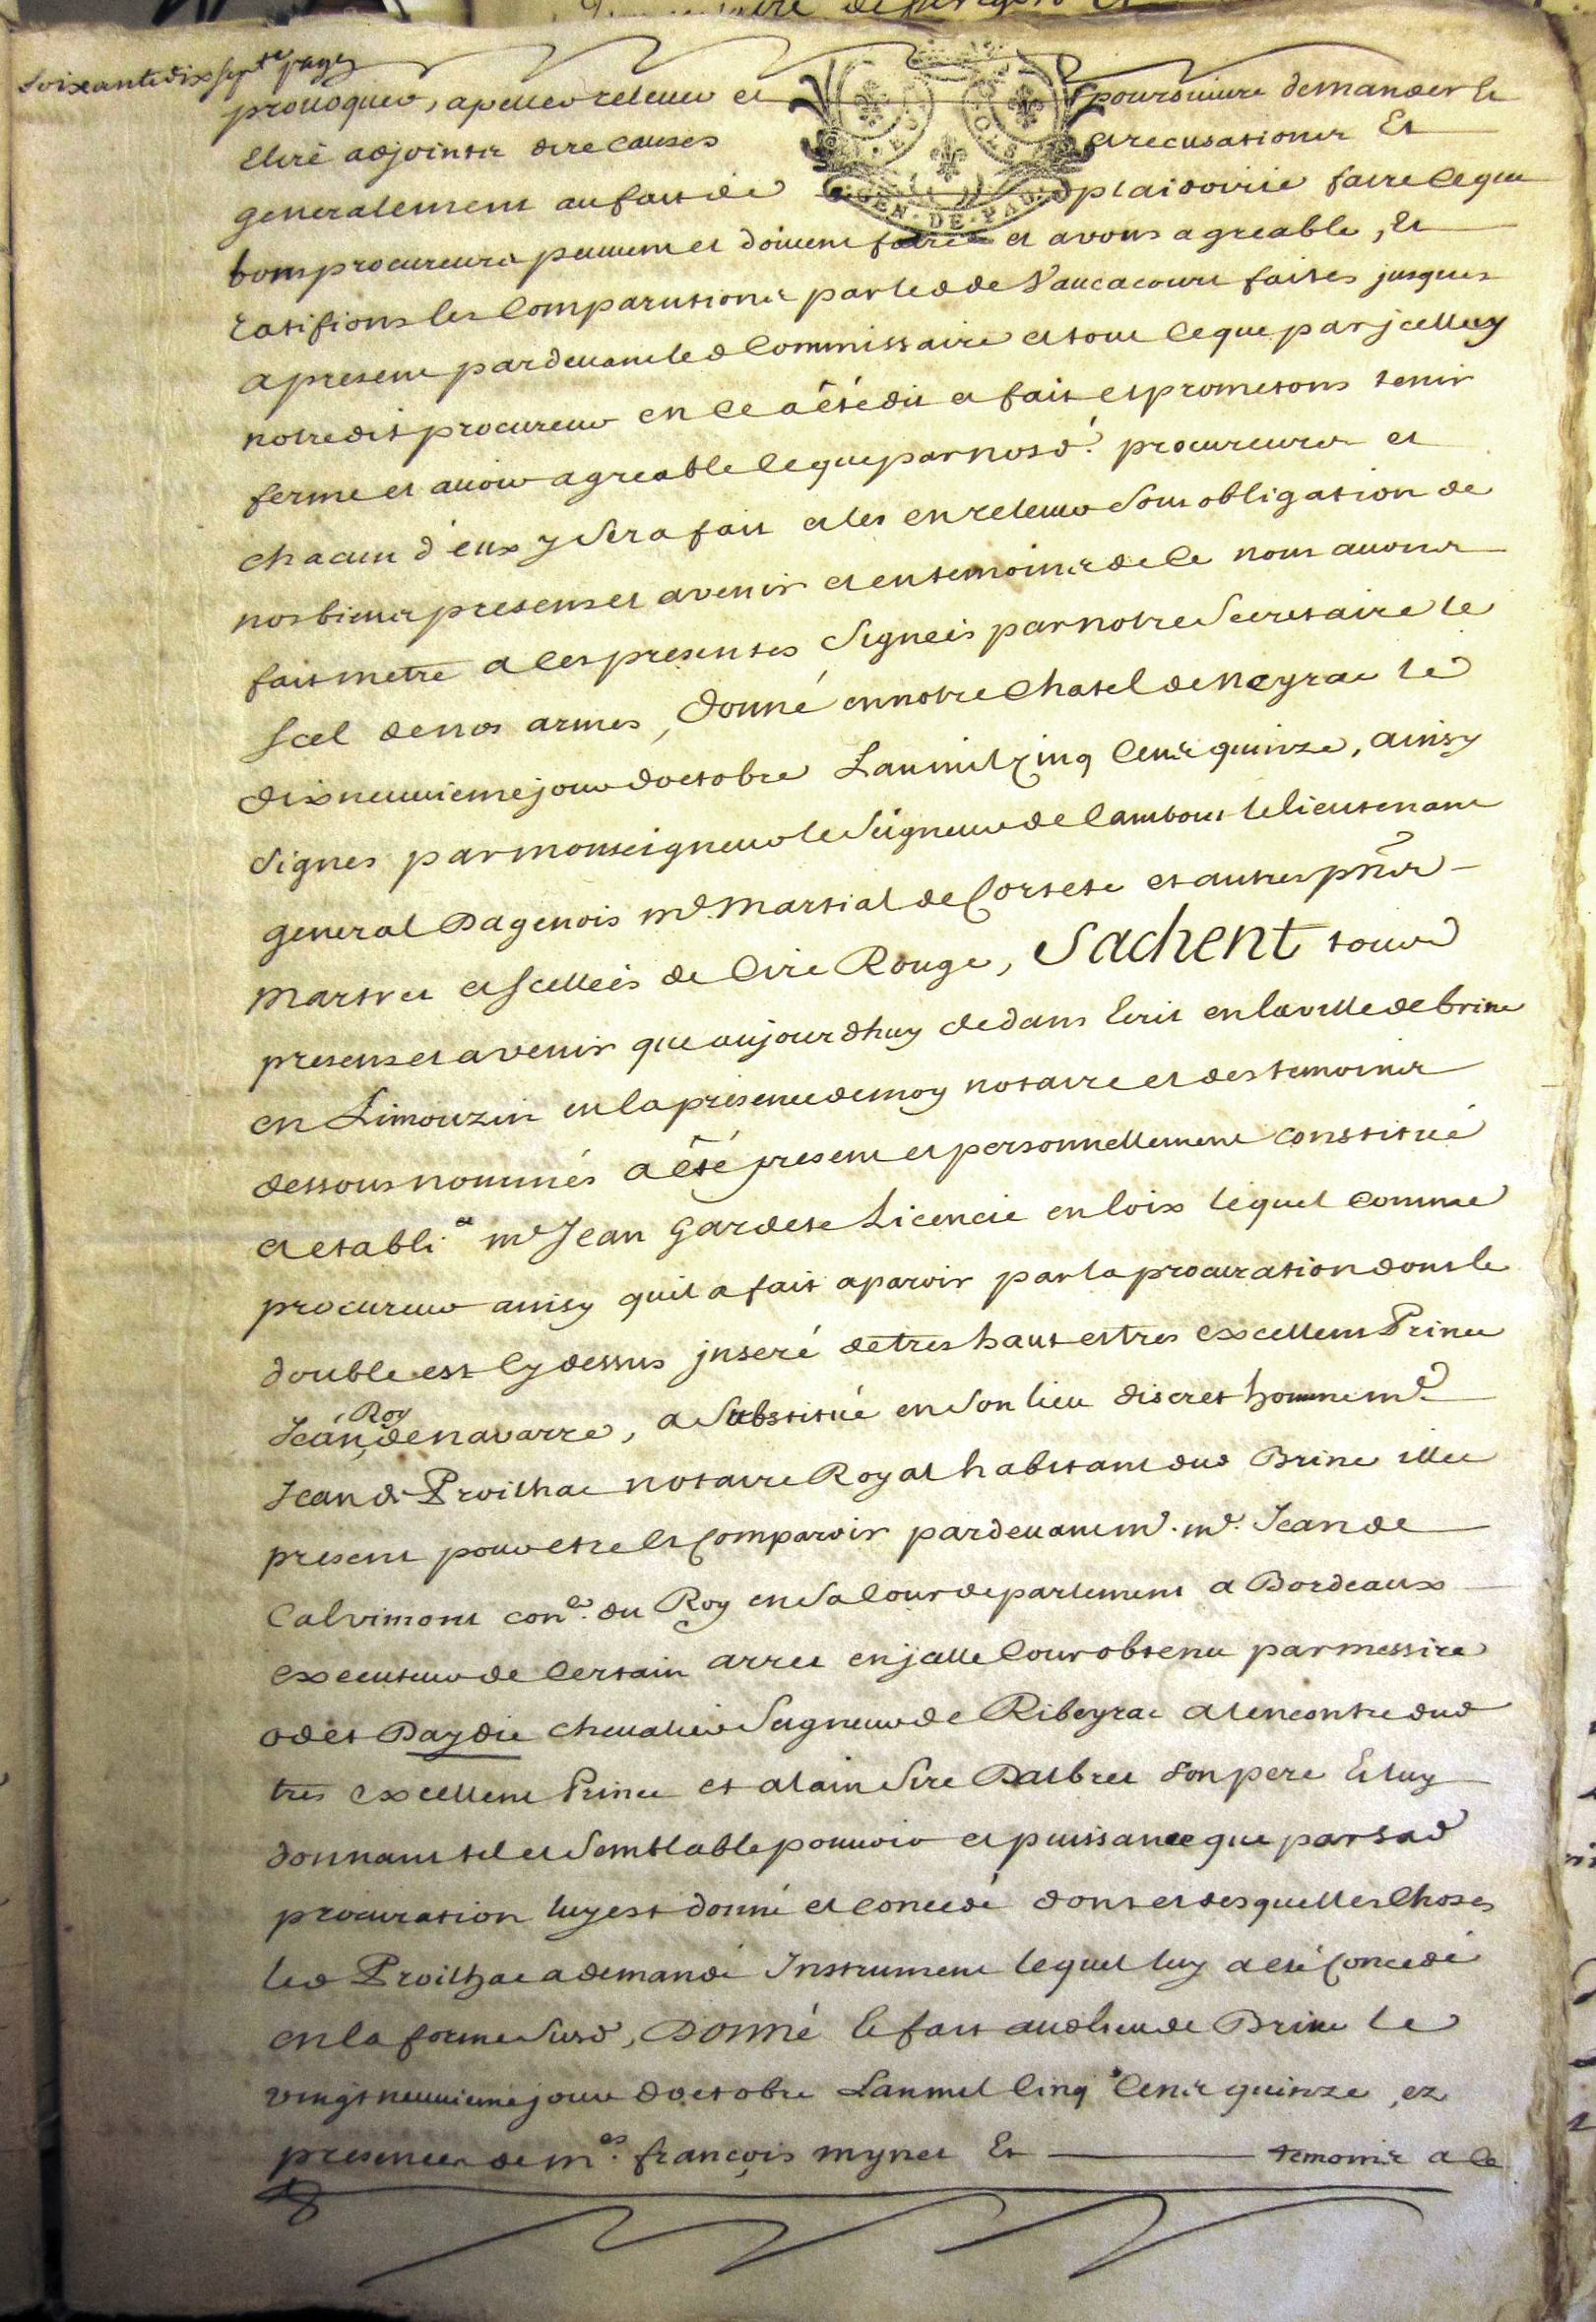 Soixante dix sept.e page
provoquer, apeller relever et poursuivre demander et
elire adjointz dire causes et recusationz Et
generalement au fait de plaidoirie faire ce que
bons procureurs peuvent et doivent faire et avons agreable, Et
ratifions les comparutionz par led de Vaucacourt faites jusques
a present pardevant led Commissaire et tout ce que par jcelluy
notre dit procureur en ce a été dit et fait et prometons tenir
ferme et avoir agreable ce que par nosd. procureurs et
chacun d'eux y sera fait et les en relever sous obligation de
nos bienz presens et avenir et en temoinz de ce nous avons
fait metre a ces presentes signeés par notre Secretaire le
scel de nos armes, donné en notre chatel de Neyrac le
dix neuvieme jour doctobre Lan mil cinq cenz quinze, ainsy
signes par monseigneur le Seigneur de Cambout le lieutenant
general Dagenois md. Martial de Cortete et autres pñs
Martret et scelleés de Cire Rouge, Sachent tous
presens et avenir que aujourdhuy dedans Ecrit en la ville de brive
en Limouzin en la presence de moy notaire et des temoinz
dessous nommés a été present et personnellement constitué
et etabli md Jean Gardete Licencié en loix lequel comme
procureur ainsy quil a fait aparoir par la procuration dont le
double est cy dessus jnseré de tres haut et tres excellent Prince
Jean, Roy de navarre, a substitué en son lieu discret homme md.
Jean de Proilhac notaire Royal habitant dud Brive illec
present pour et se et comparoir pardevant md. md. Jean de
Calvimont coner. du Roy en sa Cour de parlement a Bordeaux
executeur de certain arret en jcelle Cour obtenu par messire
odet Daydie chevalier Seigneur de Ribeyrac a lencontre dud
tres excellent Prince et alain Sire Dalbret son pere Et luy
donnant tel et semblable pouvoir et puissance que par sad
procuration luy est donné et concedé dont et desquelles choses
led Proilhac a demandé Instrument lequel luy a eté concedé
en la forme susd, Donné et fait aud lieu de Brive le
vingt neuvieme jour doctobre Lan mil cinq cenz quinze, ez
presences de mes. françois mynet Et temoinz a ce
GEN. DE. PAU